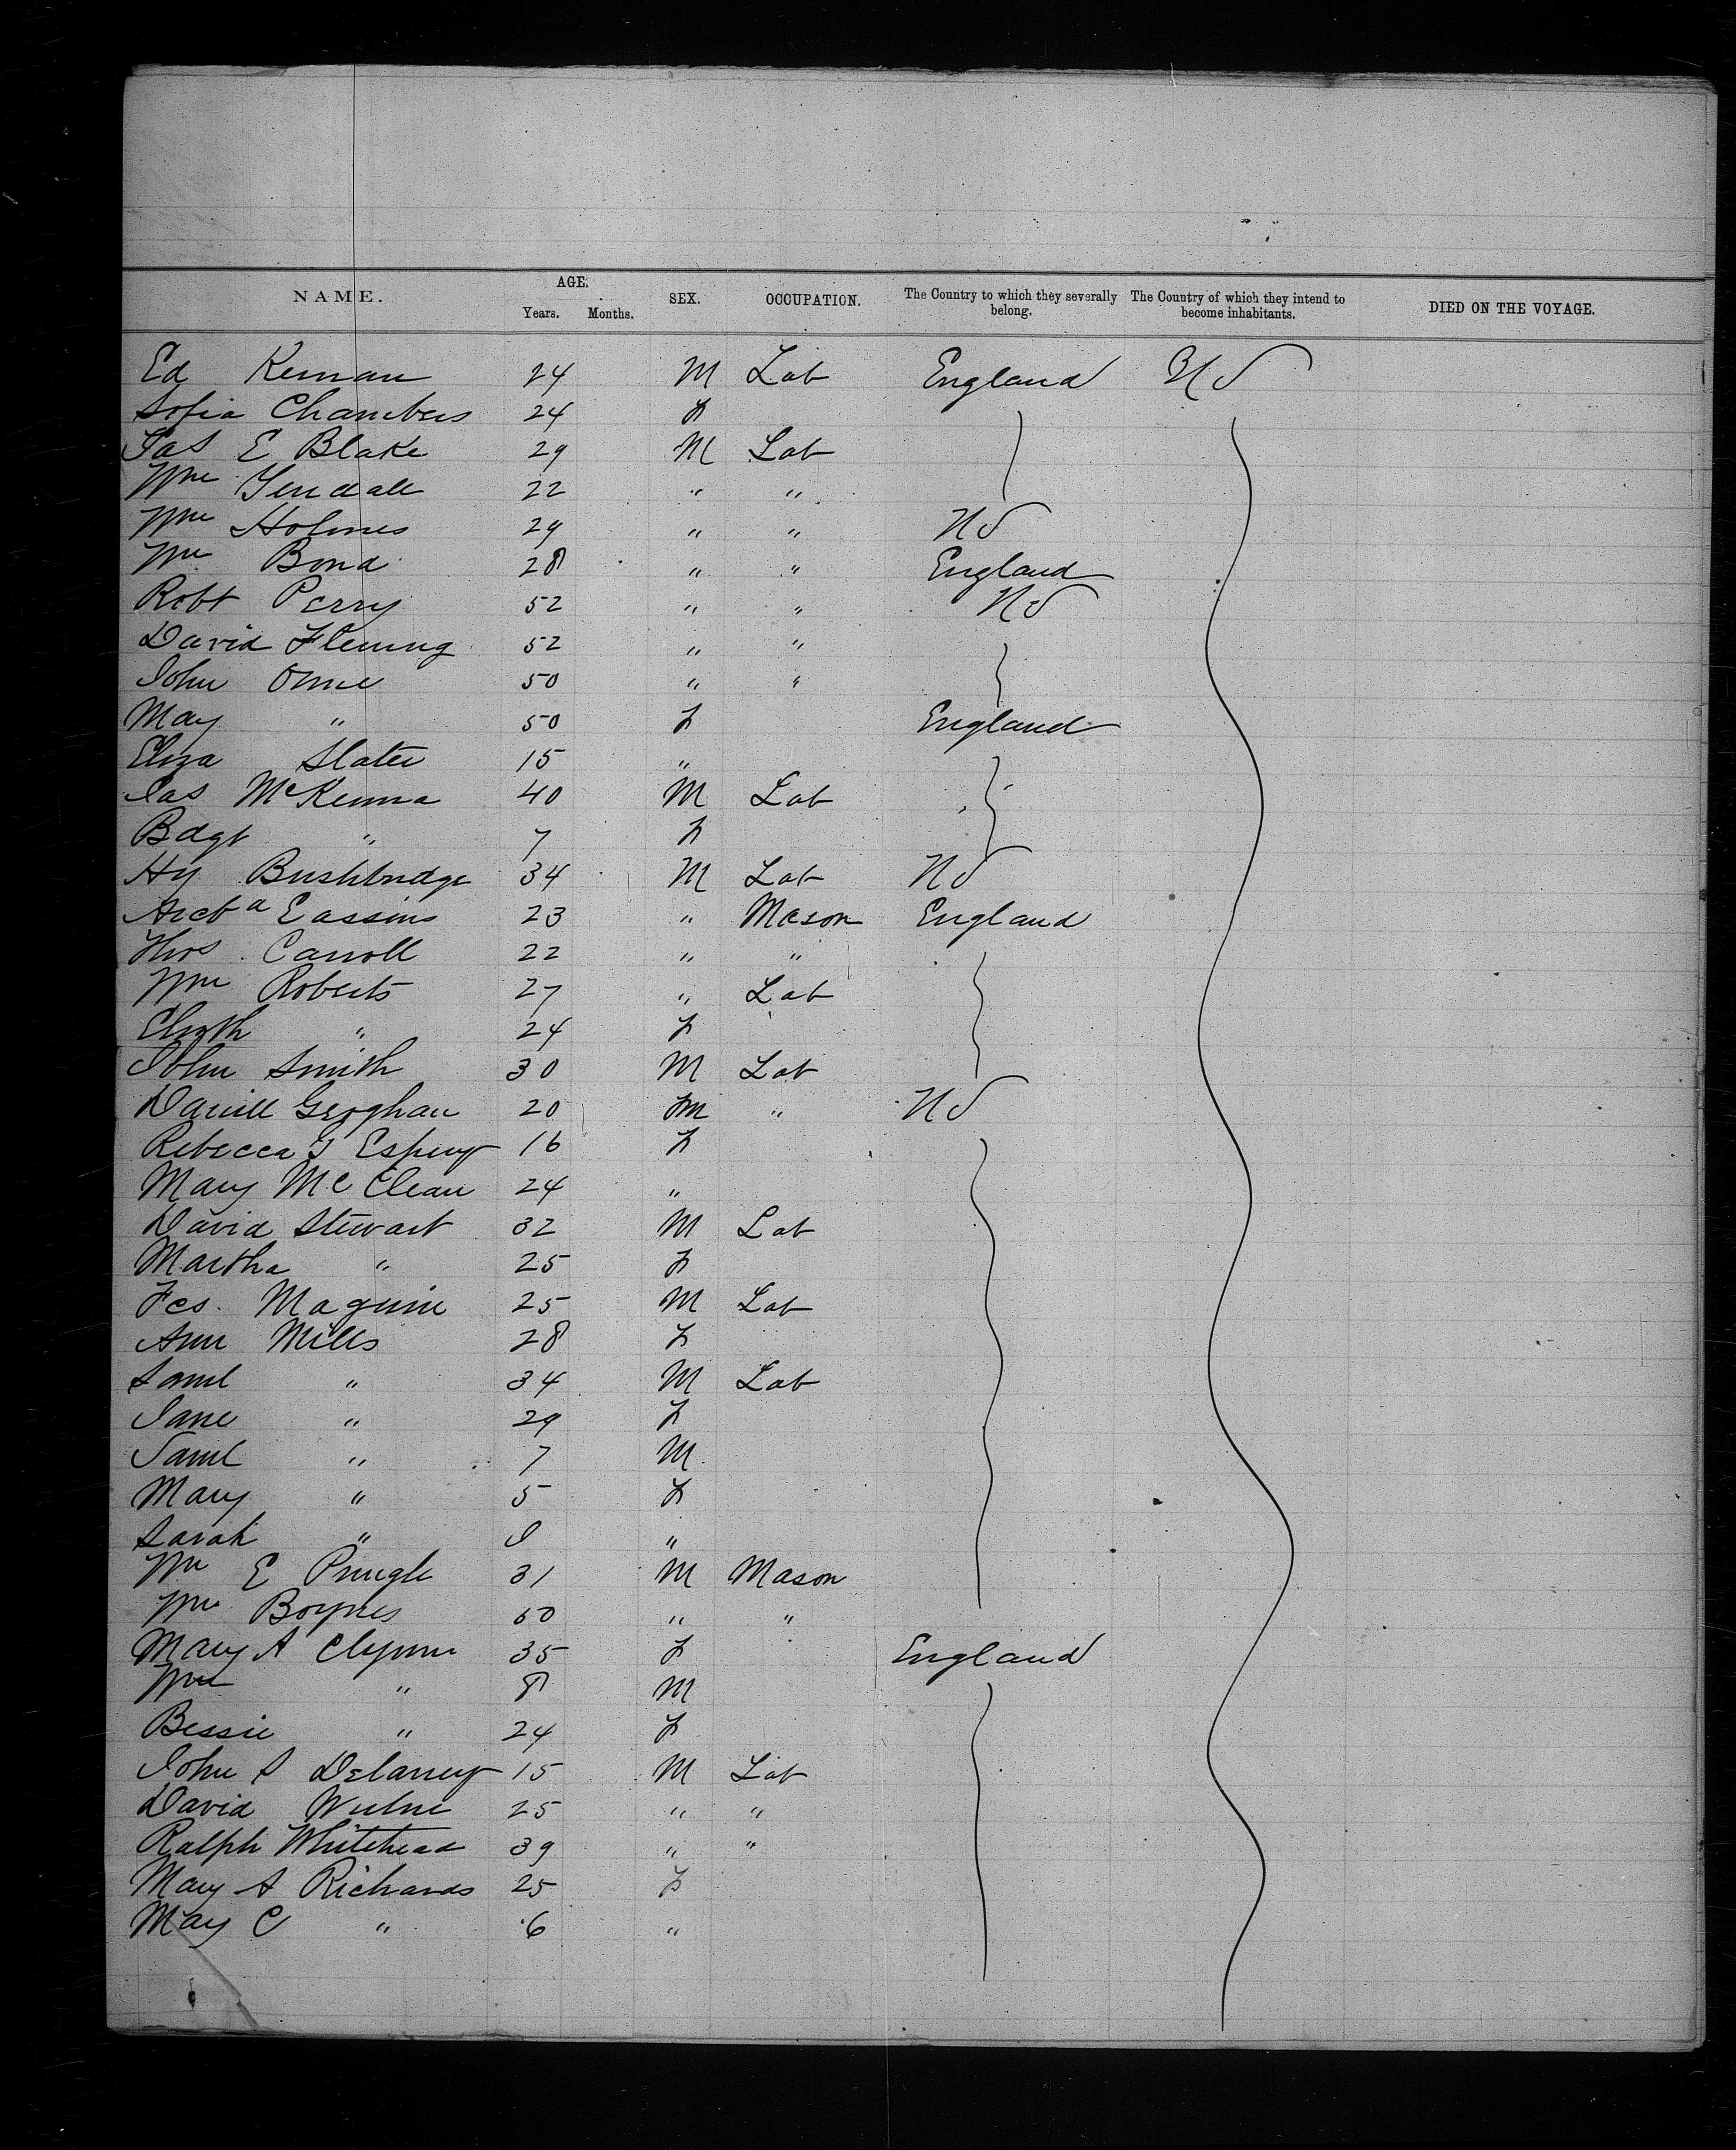 NAME. AGE. Years. Months. SEX. OCCUPATION. The Country to which they severally belong. The Country of which they intend to become inhabitants. DIED ON THE VOYAGE.
Ed Kernan 24 M Lab England US
Sofia Chambers 24 F
Jas E Blake 29 M Lab
Wm Yendall 22 " "
Wm Holmes 29 " " US
Wm Bond 28 " " England
Robt Perry 52 " " US
David Fleming 52 " "
John Orme 50 " "
May " 50 F England
Eliza Slater 15 "
Jas McKenna 40 M Lab
Bdgt " 7 F
Hy Bushbridge 34 M Lab US
23 " Mason England
Thos Carroll 22 " "
Wm Roberts 27 " Lab
Elizth " 24 F
John Smith 30 M Lab
Daniel Geoghan 20 M " US
Rebecca J Espey 16 F
Mary McClean 24 "
David Stewart 32 M Lab
Martha " 25 F
Fcs. Maguire 25 M Lab
Ann Mills 28 F
Saml " 34 M Lab
Jane " 29 F
Saml " 7 M
Mary " 5 F
Sarah " "
Wm E Pringle 31 M Mason
Wm Boynes 60 " "
Mary A 35 F England
Wm " 8 M
Bessie " 24 F
John S Delaney 15 M Lab
David 25 " "
Ralph Whitehead 39 " "
Mary A Richards 25 F
May C " 6 "